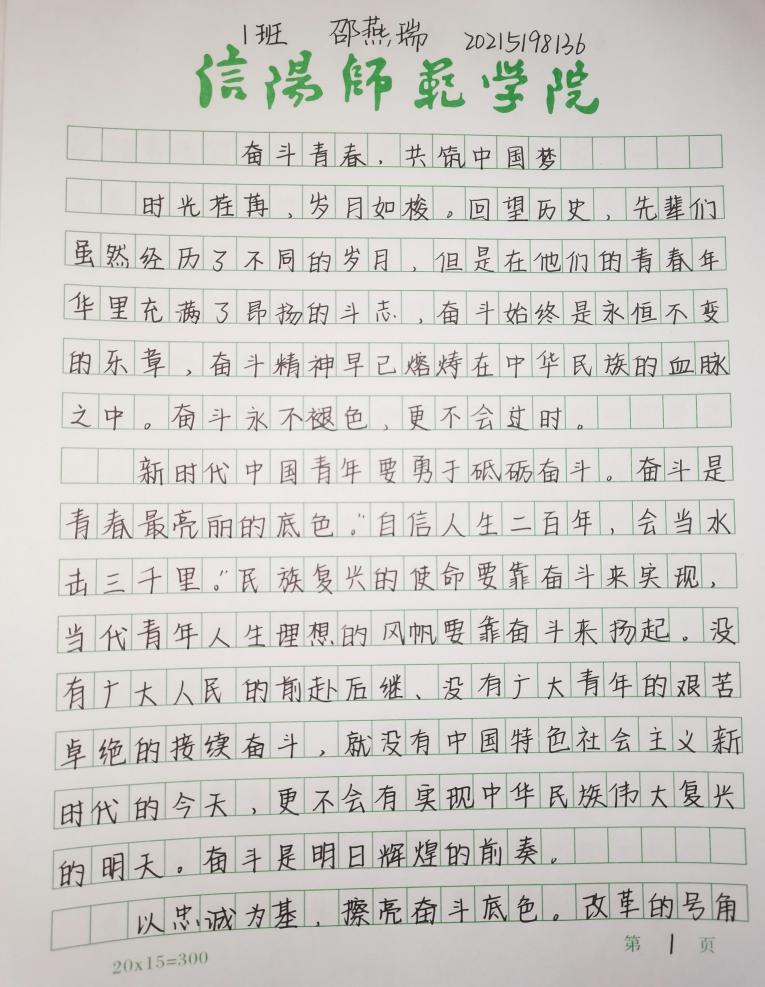 1班 邵燕瑞 20215198136
信陽師範学院
奋斗青春，共筑中国梦
时光荏苒，岁月如梭。回望历史，先辈们
虽然经历了不同的岁月，但是在他们的青春年
华里充满了昂扬的斗志，奋斗始终是永恒不变
的乐章，奋斗精神早已熔铸在中华民族的血脉
之中。奋斗永不褪色，更不会过时。
新时代中国青年要勇于砥砺奋斗。奋斗是
青春最亮丽的底色。“自信人生二百年，会当水
击三千里。”民族复兴的使命要靠奋斗来实现，
当代青年人生理想的风帆要靠奋斗来扬起。没
有广大人民的前赴后继、没有广大青年的艰苦
卓绝的接续奋斗，就没有中国特色社会主义新
时代的今天，更不会有实现中华民族伟大复兴
的明天。奋斗是明日辉煌的前奏。
以忠诚为基，擦亮奋斗底色。改革的号角
20x15=300
第 1 页